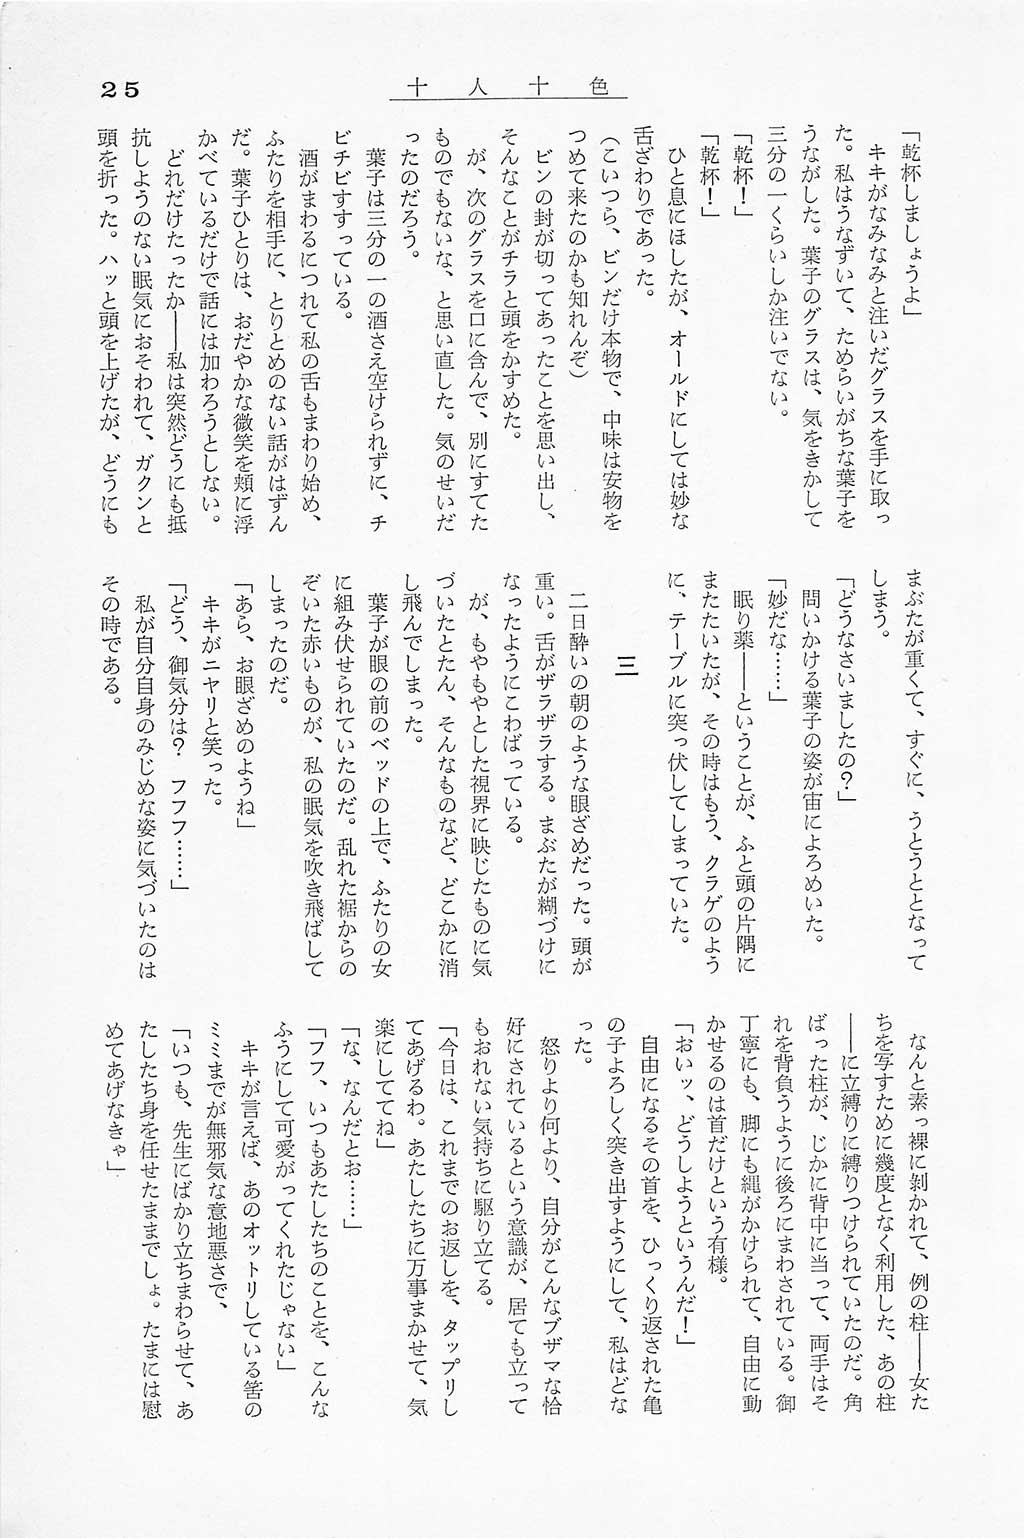 25
十人十色
「乾杯しましょうよ」
　キキがなみなみと注いだグラスを手に取っ
た。私はうなずいて、ためらいがちな葉子を
うながした。葉子のグラスは、気をきかして
三分の一くらいしか注いでない。
「乾杯！」
「乾杯！」
　ひと息にほしたが、オールドにしては妙な
舌ざわりであった。
（こいつら、ビンだけ本物で、中味は安物を
つめて来たのかも知れんぞ）
　ビンの封が切ってあったことを思い出し、
そんなことがチラと頭をかすめた。
　が、次のグラスを口に含んで、別にすてた
ものでもないな、と思い直した。気のせいだ
ったのだろう。
　葉子は三分の一の酒さえ空けられずに、チ
ビチビすすっている。
　酒がまわるにつれて私の舌もまわり始め、
ふたりを相手に、とりとめのない話がはずん
だ。葉子ひとりは、おだやかな微笑を頬に浮
かべているだけで話には加わろうとしない。
　どれだけたったか――私は突然どうにも抵
抗しようのない眠気におそわれて、ガクンと
頭を折った。ハッと頭を上げたが、どうにも
まぶたが重くて、すぐに、うとうととなって
しまう。
「どうなさいましたの？」
　問いかける葉子の姿が宙によろめいた。
「妙だな……」
　眠り薬――ということが、ふと頭の片隅に
またたいたが、その時はもう、クラゲのよう
に、テーブルに突っ伏してしまっていた。
三
　二日酔いの朝のような眼ざめだった。頭が
重い。舌がザラザラする。まぶたが糊づけに
なったようにこわばっている。
　が、もやもやとした視界に映じたものに気
づいたとたん、そんなものなど、どこかに消
し飛んでしまった。
　葉子が眼の前のベッドの上で、ふたりの女
に組み伏せられていたのだ。乱れた裾からの
ぞいた赤いものが、私の眠気を吹き飛ばして
しまったのだ。
「あら、お眼ざめのようね」
　キキがニヤリと笑った。
「どう、御気分は？　フフフ……」
　私が自分自身のみじめな姿に気づいたのは
その時である。
　なんと素っ裸に剝かれて、例の柱――女た
ちを写すために幾度となく利用した、あの柱
――に立縛りに縛りつけられていたのだ。角
ばった柱が、じかに背中に当って、両手はそ
れを背負うように後ろにまわされている。御
丁寧にも、脚にも縄がかけられて、自由に動
かせるのは首だけという有様。
「おいッ、どうしようというんだ！」
　自由になるその首を、ひっくり返された亀
の子よろしく突き出すようにして、私はどな
った。
　怒りより何より、自分がこんなブザマな恰
好にされているという意識が、居ても立って
もおれない気持ちに駆り立てる。
「今日は、これまでのお返しを、タップリし
てあげるわ。あたしたちに万事まかせて、気
楽にしててね」
「な、なんだとお……」
「フフ、いつもあたしたちのことを、こんな
ふうにして可愛がってくれたじゃない」
　キキが言えば、あのオットリしている筈の
ミミまでが無邪気な意地悪さで、
「いつも、先生にばかり立ちまわらせて、あ
たしたち身を任せたままでしょ。たまには慰
めてあげなきゃ」